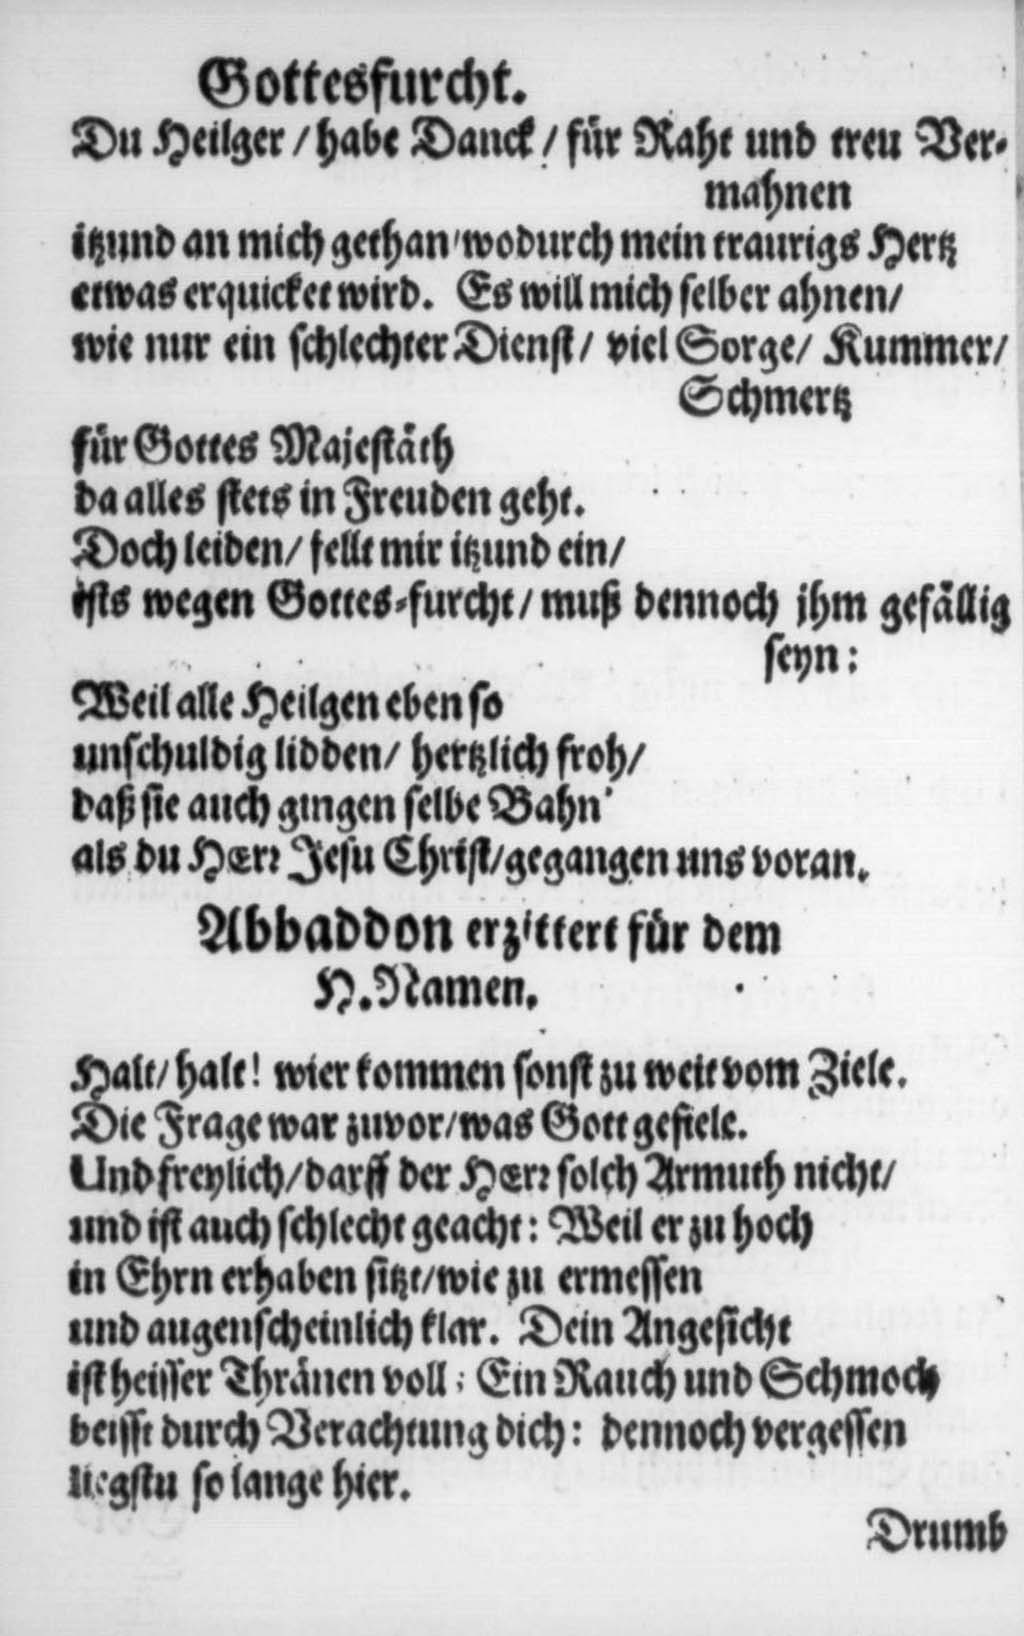 Gottesfurcht.
Du Heilger / habe Danck / für Raht und treu Ver-
mahnen
itzund an mich gethan / wodurch mein traurigs Hertz
etwas erquicket wird. Es will mich selber ahnen/
wie nur ein schlechter Dienst/ viel Sorge/ Kummer/
Schmertz
für Gottes Majestäth
da alles stets in Freuden geht.
Doch leiden/ fellt mir itzund ein/
ists wegen Gottes-furcht/ muß dennoch jhm gefällig
seyn:
Weil alle Heilgen eben so
unschuldig lidden/ hertzlich froh/
daß sie auch gingen selbe Bahn'
als du HErr Jesu Christ/gegangen uns voran.
Abbaddon erzittert für dem
H. Namen.
Halt/ halt! wier kommen sonst zu weit vom Ziele.
Die Frage war zuvor/was Gott gefiele.
Und freylich/darff der HErr solch Armuth nicht/
und ist auch schlecht geacht: Weil er zu hoch
in Ehrn erhaben sitzt/wie zu ermessen
und augenscheinlich klar. Dein Angesicht
ist heisser Thränen voll; Ein Rauch und Schmoch
beisst durch Verachtung dich: dennoch vergessen
liegstu so lange hier.
Drumb